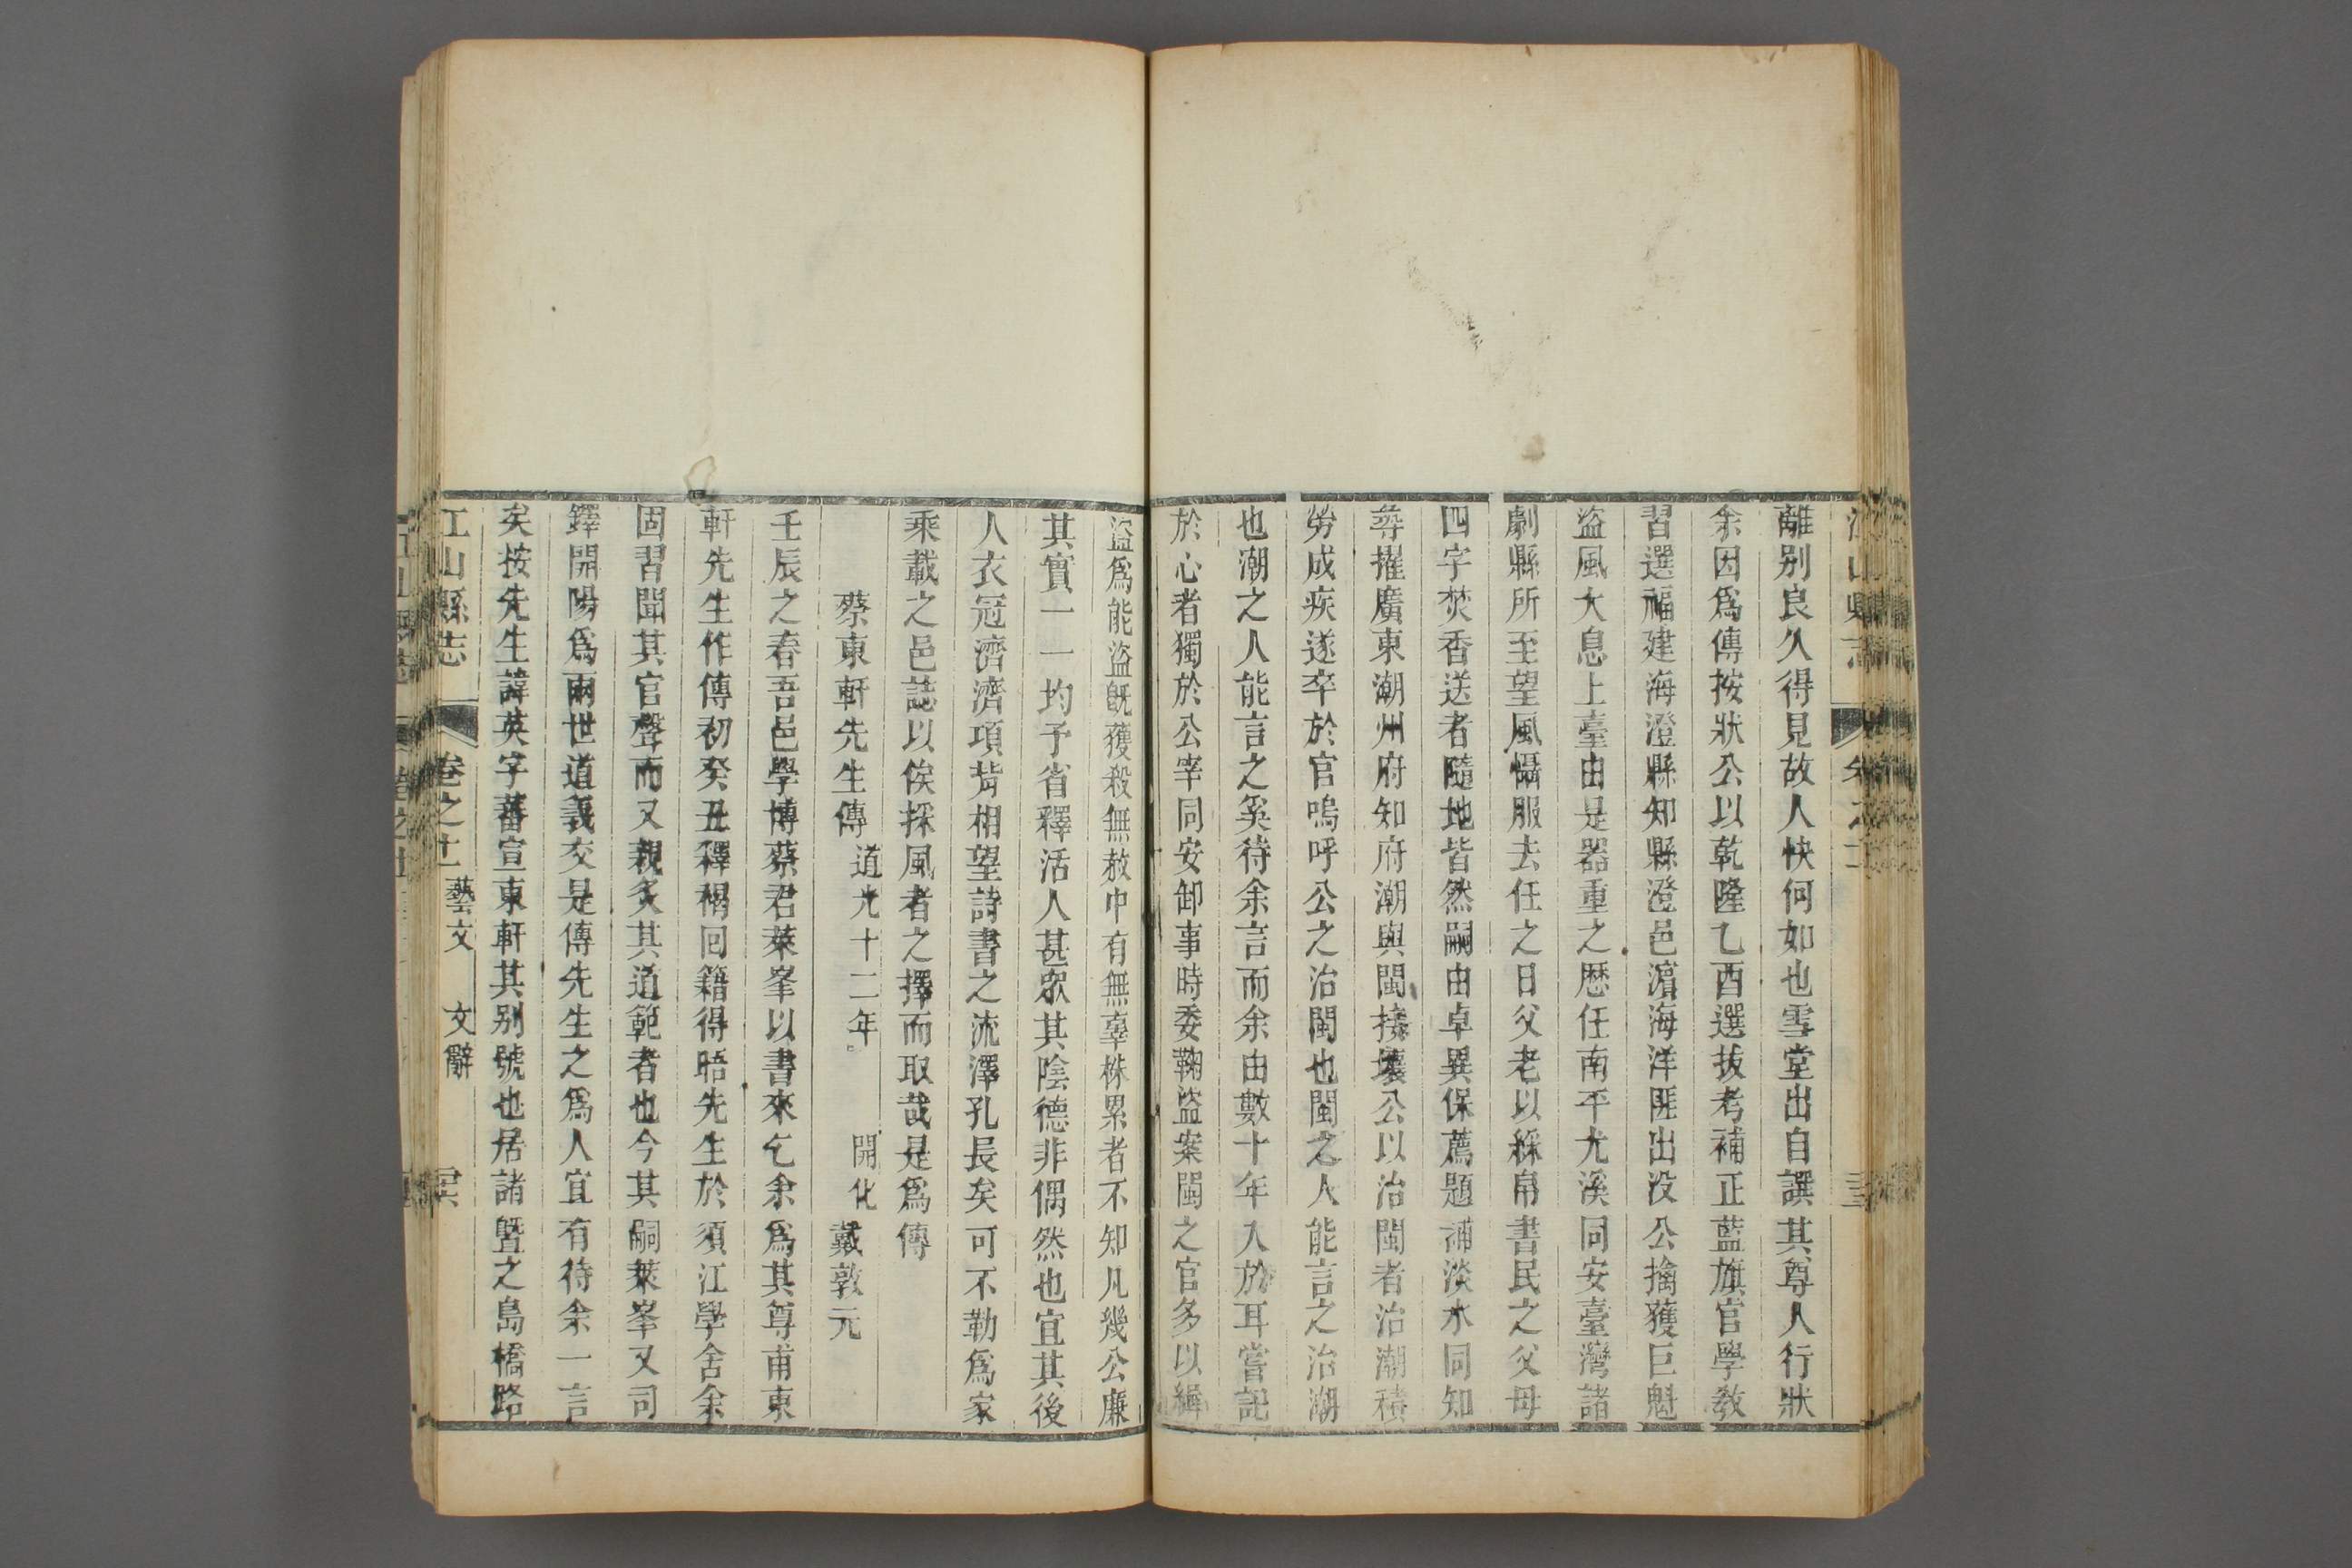 離別良久得見故人快何如也雪堂出自譔其尊人行狀
余因爲傳按狀公以乾隆乙酉選拔考補正藍旗官學教
習選福建海澄縣知縣澄邑濵海洋匪出没公擒獲巨魁
盜風大息上臺由是器重之歷任南平尤溪同安臺灣諸
劇縣所至望風懾服去任之日父老以綵帛書民之父母
四字焚香送者隨地皆然嗣由卓異保薦題補淡水同知
尋擢廣東潮州府知府潮與閩接壤公以治閩者治潮積
勞成疾遂卒於官嗚呼公之治閩也閩之人能言之治潮
也潮之人能言之奚待余言而余由數十年入於耳嘗記
於心者獨於公宰同安卸事時委鞫盜案閩之官多以緝
盜爲能盜旣獲殺無赦中有無辜株累者不知凡幾公廉
其實一一均予省釋活人甚眾其陰德非偶然也宜其後
人衣冠濟濟項背相望詩書之流澤孔長矣可不勒爲家
乘載之邑誌以俟採風者之擇而取哉是爲傳
蔡東軒先生傳 道光十二年 開化 戴敦元
壬辰之春吾邑學博蔡君萊峯以書來乞余爲其尊甫東
軒先生作傳初癸丑釋褐回籍得晤先生於須江學舍余
固習聞其官聲而又親炙其道範者也今其嗣萊峯又司
鐸開陽爲兩世道義交是傳先生之爲人宜有待余一言
矣按先生諱英字蕃宣東軒其別號也居諸曁之島橋路
江山縣志 卷之十一 藝文 文辭